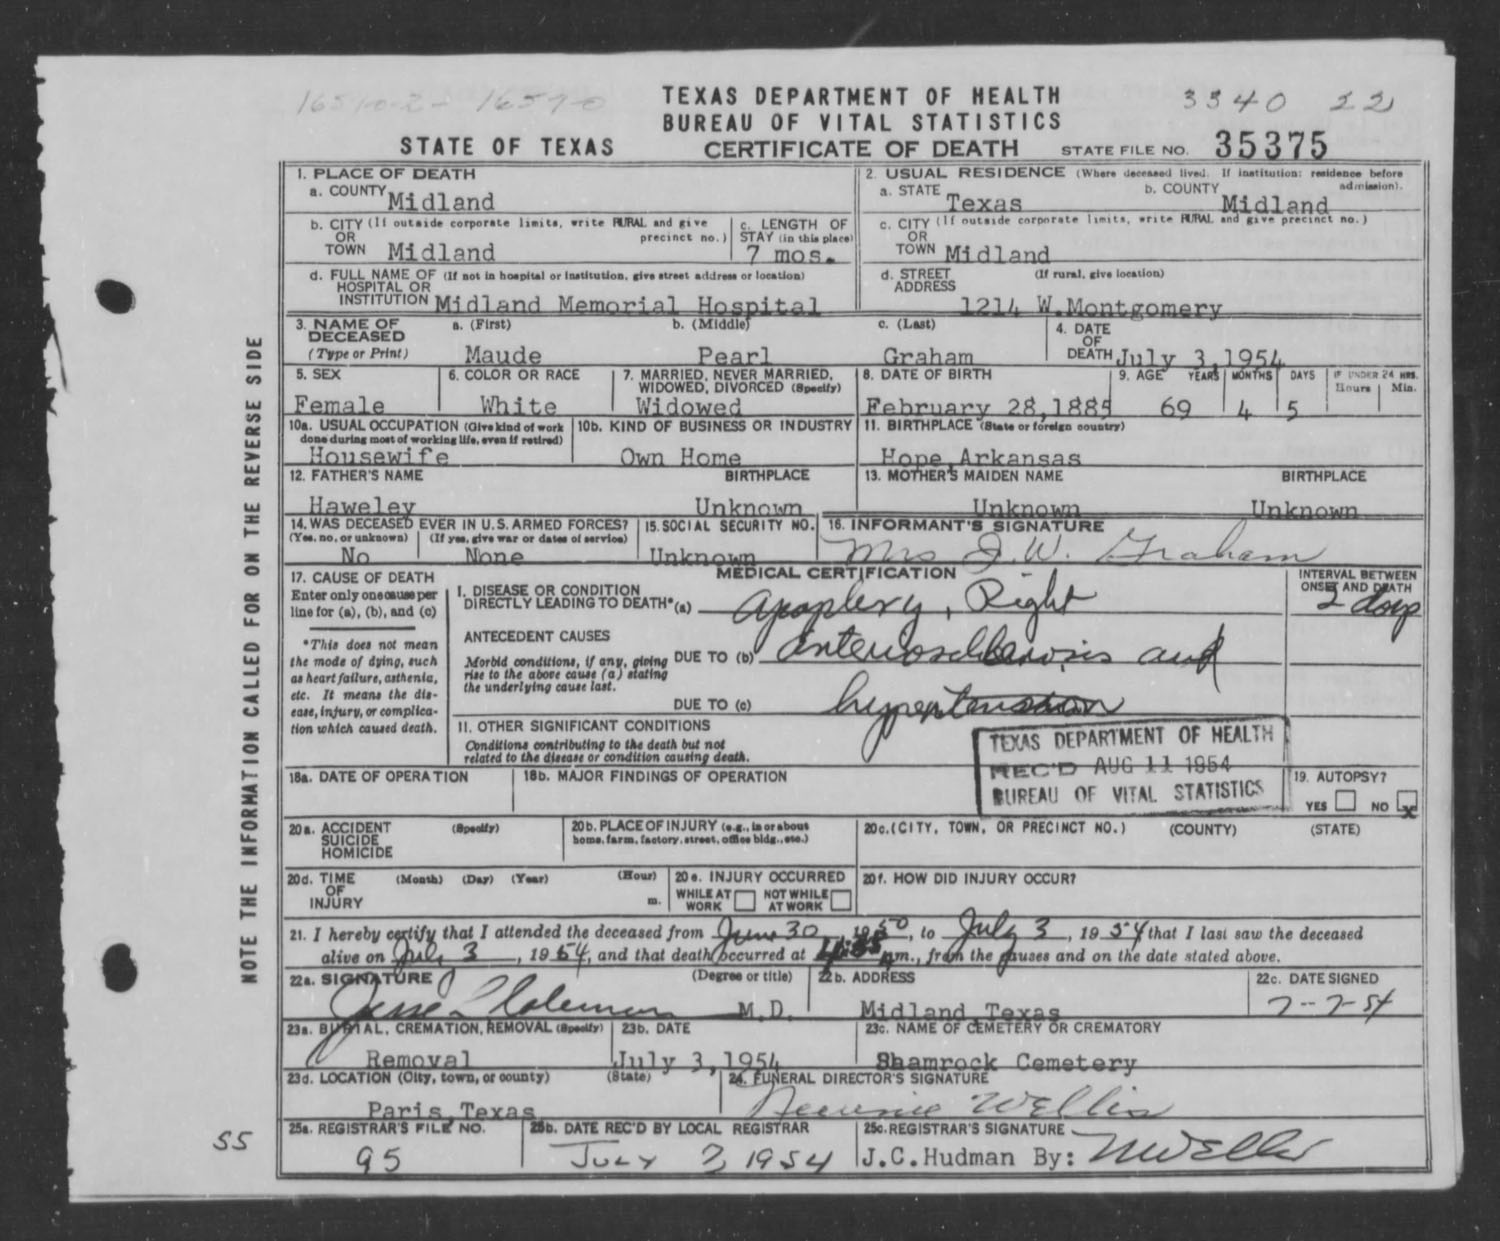 TEXAS DEPARTMENT OF HEALTH
BUREAU OF VITAL STATISTICS
3340 22
STATE OF TEXAS CERTIFICATE OF DEATH STATE FILE NO. 35375
NOTE THE INFORMATION CALLED FOR ON THE REVERSE SIDE
1. PLACE OF DEATH
a. COUNTY Midland
2. USUAL RESIDENCE (Where deceased lived. If institution: residence before admission).
a. STATE Texas b. COUNTY Midland
b. CITY (If outside corporate limits, write RURAL and give precinct no.)
OR
TOWN Midland
c. LENGTH OF
STAY (in this place)
7 mos.
c. CITY (If outside corporate limits, write RURAL and give precinct no.)
OR
TOWN Midland
d. FULL NAME OF (If not in hospital or institution, give street address or location)
HOSPITAL OR
INSTITUTION Midland Memorial Hospital
d. STREET (If rural, give location)
ADDRESS
1214 W.Montgomery
3. NAME OF DECEASED
(Type or Print)
a. (First) b. (Middle) c. (Last)
Maude Pearl Graham
4. DATE
OF
DEATH July 3,1954
5. SEX
Female
6. COLOR OR RACE
White
7. MARRIED, NEVER MARRIED,
WIDOWED, DIVORCED (Specify)
Widowed
8. DATE OF BIRTH
February 28,1885
9. AGE YEARS MONTHS DAYS IF UNDER 24 HRS.
Hours Min.
69 4 5
10a. USUAL OCCUPATION (Give kind of work
done during most of working life, even if retired)
Housewife
10b. KIND OF BUSINESS OR INDUSTRY
Own Home
11. BIRTHPLACE (State or foreign country)
Hope Arkansas
12. FATHER'S NAME BIRTHPLACE
Haweley Unknown
13. MOTHER'S MAIDEN NAME BIRTHPLACE
Unknown Unknown
14. WAS DECEASED EVER IN U.S. ARMED FORCES?
(Yes, no, or unknown) (If yes, give war or dates of service)
No None
15. SOCIAL SECURITY NO.
Unknown
16. INFORMANT'S SIGNATURE
Mrs J.W. Graham
17. CAUSE OF DEATH
Enter only one cause per
line for (a), (b), and (c)
*This does not mean
the mode of dying, such
as heart failure, asthenia,
etc. It means the dis-
ease, injury, or complica-
tion which caused death.
MEDICAL CERTIFICATION
INTERVAL BETWEEN
ONSET AND DEATH
I. DISEASE OR CONDITION
DIRECTLY LEADING TO DEATH*(a) Apoplexy, Right 2 days
ANTECEDENT CAUSES
Morbid conditions, if any, giving
rise to the above cause (a) stating
the underlying cause last.
DUE TO (b) Arteriosclerosis and
DUE TO (c) hypertension
11. OTHER SIGNIFICANT CONDITIONS
Conditions contributing to the death but not
related to the disease or condition causing death.
TEXAS DEPARTMENT OF HEALTH
REC'D AUG 11 1954
BUREAU OF VITAL STATISTICS
18a. DATE OF OPERATION
18b. MAJOR FINDINGS OF OPERATION
19. AUTOPSY?
YES NO x
20a. ACCIDENT (Specify)
SUICIDE
HOMICIDE
20b. PLACE OF INJURY (e.g., in or about
home, farm, factory, street, office bldg., etc.)
20c. (CITY, TOWN, OR PRECINCT NO.) (COUNTY) (STATE)
20d. TIME (Month) (Day) (Year) (Hour)
OF
INJURY m.
20e. INJURY OCCURRED
WHILE AT WORK NOT WHILE AT WORK
20f. HOW DID INJURY OCCUR?
21. I hereby certify that I attended the deceased from June 30, 1950, to July 3, 1954 that I last saw the deceased
alive on July 3, 1954, and that death occurred at m., from the causes and on the date stated above.
22a. SIGNATURE (Degree or title)
M.D.
22b. ADDRESS
Midland Texas
22c. DATE SIGNED
7-7-54
23a. BURIAL, CREMATION, REMOVAL (Specify)
Removal
23b. DATE
July 3,1954
23c. NAME OF CEMETERY OR CREMATORY
Shamrock Cemetery
23d. LOCATION (City, town, or county) (State)
Paris Texas
24. FUNERAL DIRECTOR'S SIGNATURE
25a. REGISTRAR'S FILE NO.
95
25b. DATE REC'D BY LOCAL REGISTRAR
JULY 7, 1954
25c. REGISTRAR'S SIGNATURE
J.C.Hudman By:
55